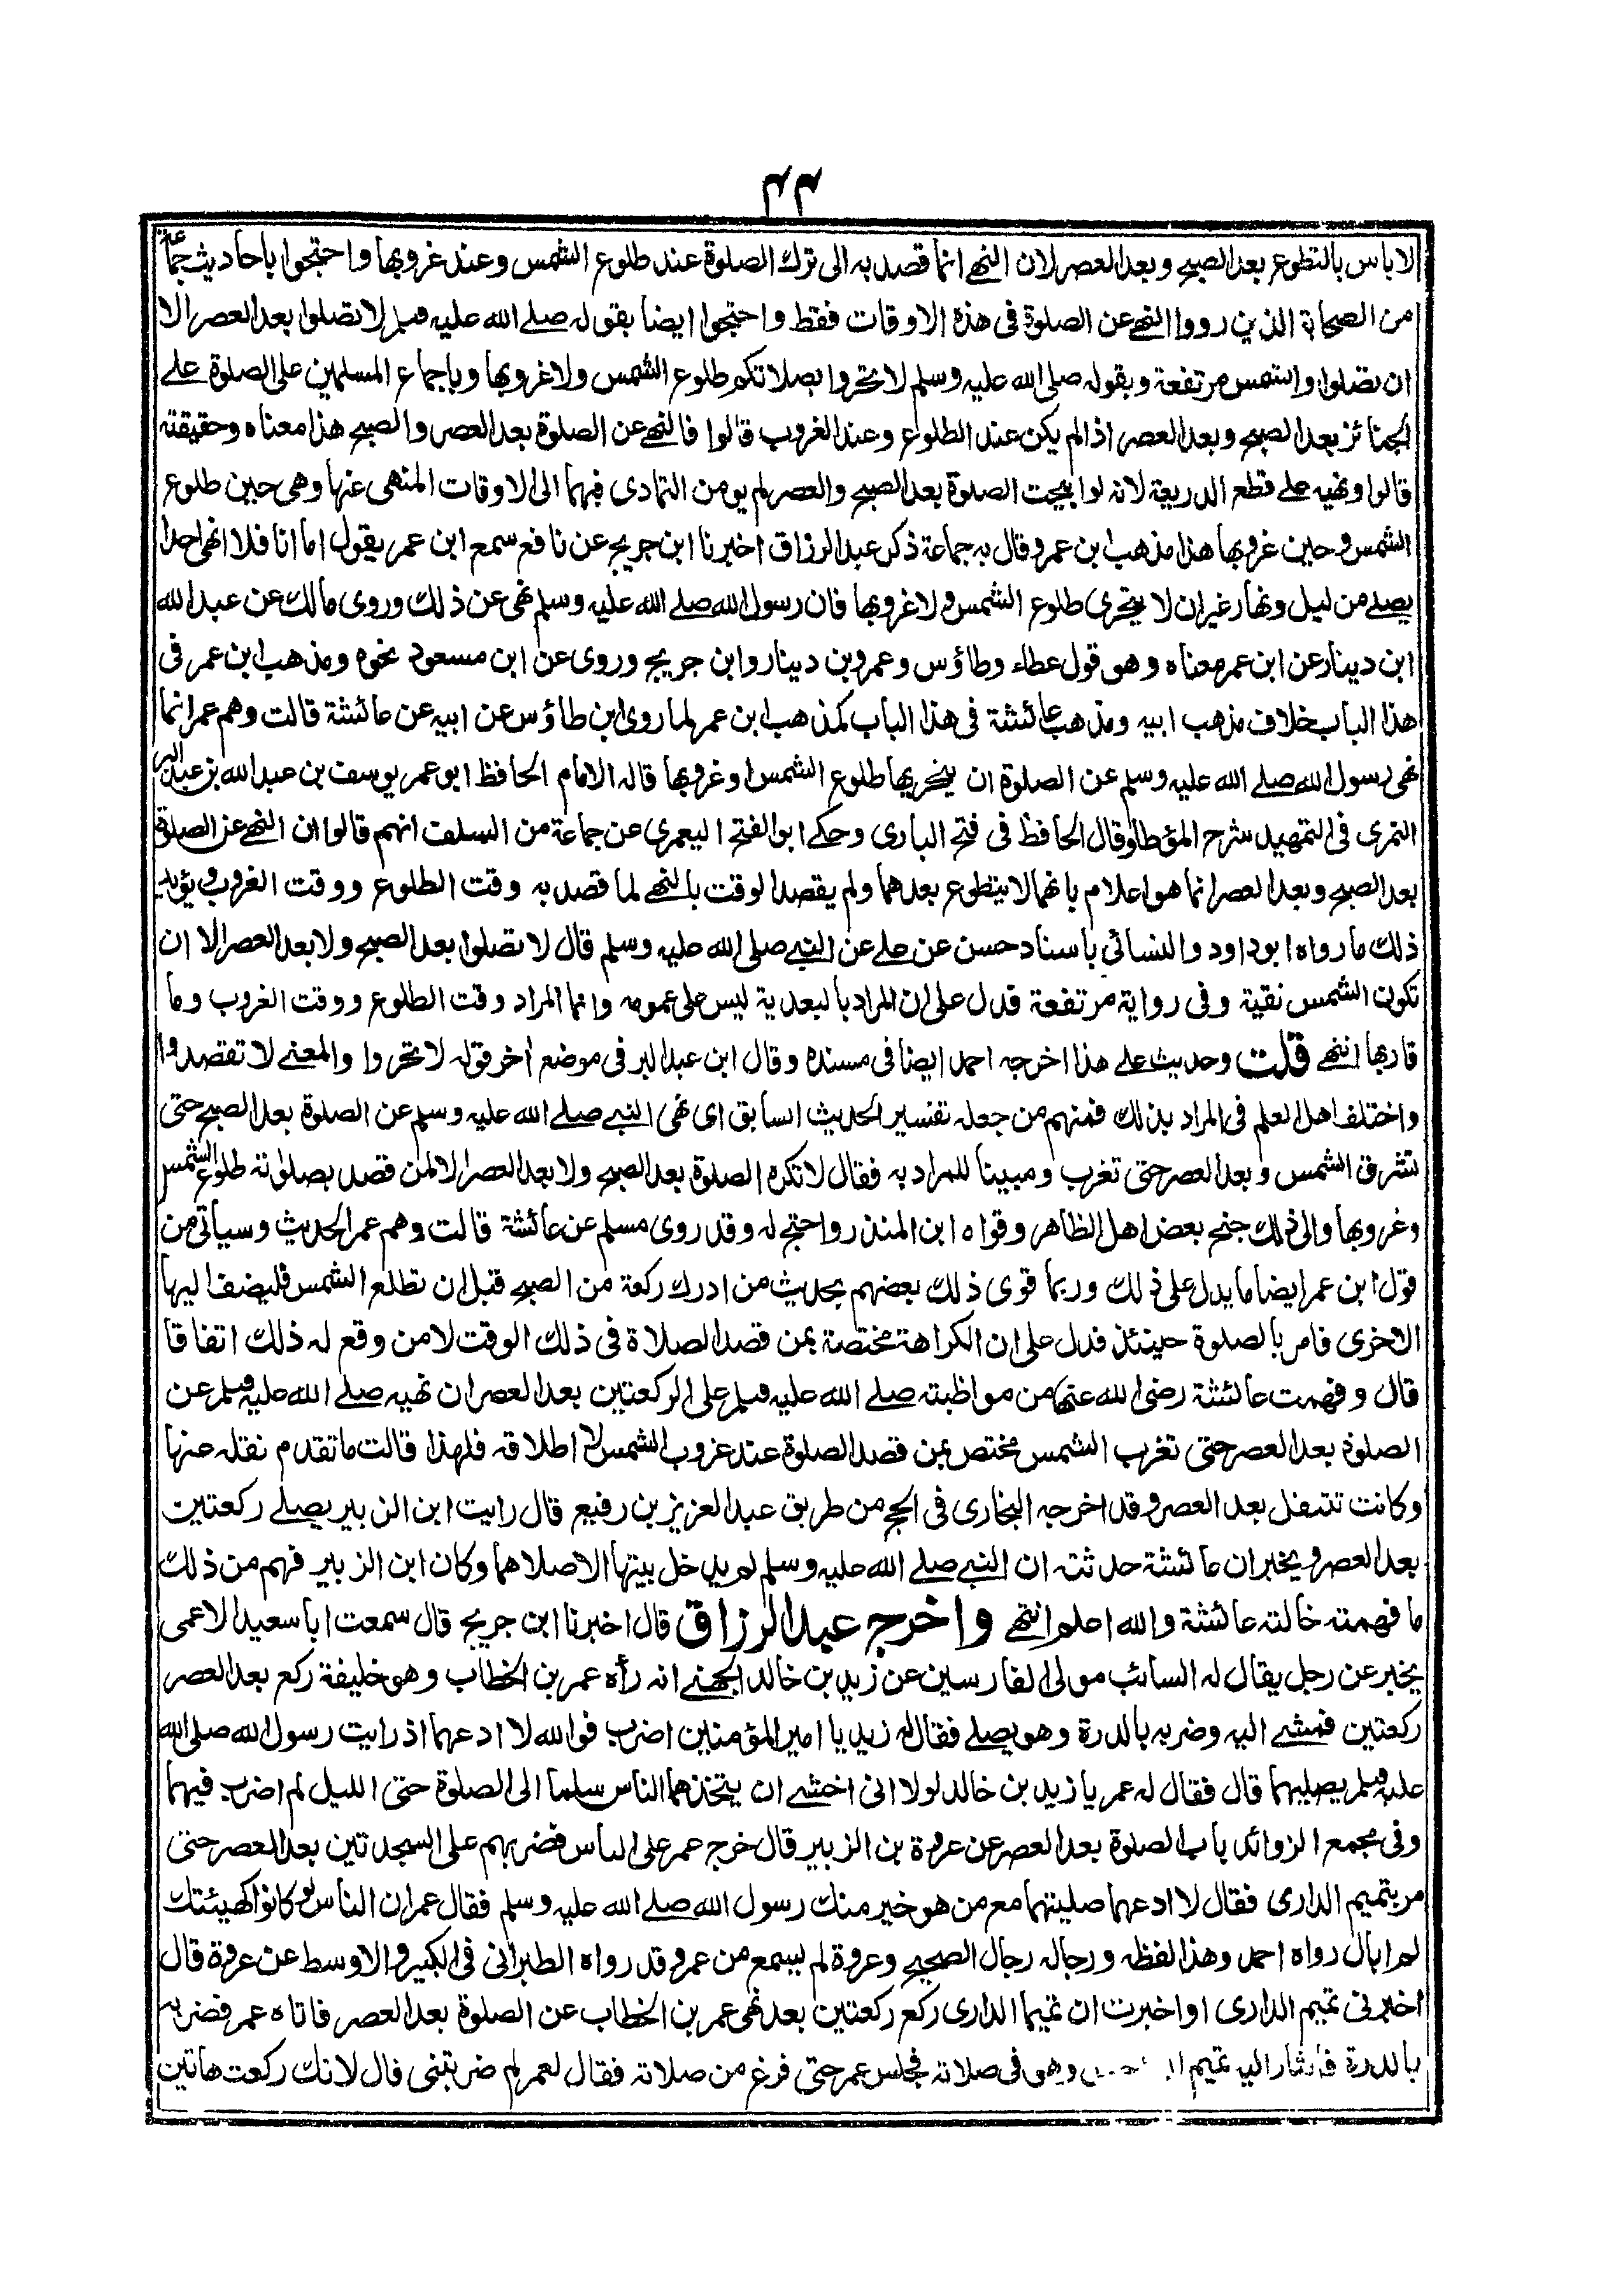 ٤٤
لا باس بالتطوع بعد الصبح وبعد العصر لان النهى انما قصد به الى ترك الصلوة عند طلوع الشمس وعند غروبها واحتجوا باحاديث جماعة
من الصحابة الذين رووا النهى عن الصلوة فى هذه الاوقات فقط واحتجوا ايضا بقوله صلى الله عليه وسلم لا تصلوا بعد العصر الا
ان تصلوا والشمس مرتفعة وبقوله صلى الله عليه وسلم لا تحروا بصلاتكم طلوع الشمس ولا غروبها وباجماع المسلمين على الصلوة على
الجنائز بعد الصبح وبعد العصر اذا لم يكن عند الطلوع وعند الغروب قالوا فالنهى عن الصلوة بعد العصر والصبح هذا معناه وحقيقته
قالوا ونهيه على قطع الذريعة لانه لو ابيحت الصلوة بعد الصبح والعصر لم يومن التمادى فيهما الى الاوقات المنهى عنها وهى حين طلوع
الشمس وحين غروبها هذا مذهب ابن عمر وقال به جماعة ذكر عبد الرزاق اخبرنا ابن جريج عن نافع سمع ابن عمر يقول اما انا فلا انهى احدا
يصلى من ليل ونهار غير ان لا يتحرى طلوع الشمس ولا غروبها فان رسول الله صلى الله عليه وسلم نهى عن ذلك وروى مالك عن عبد الله
ابن دينار عن ابن عمر معناه وهو قول عطاء وطاؤس وعمرو بن دينار وابن جريج وروى عن ابن مسعود نحوه ومذهب ابن عمر فى
هذا الباب خلاف مذهب ابيه ومذهب عائشة فى هذا الباب كمذهب ابن عمر لما روى ابن طاؤس عن ابيه عن عائشة قالت وهم عمر انما
نهى رسول الله صلى الله عليه وسلم عن الصلوة ان يتحرى بها طلوع الشمس او غروبها قاله الامام الحافظ ابو عمر يوسف بن عبد الله بن عبد البر
النمرى فى التمهيد شرح المؤطا وقال الحافظ فى فتح البارى وحكى ابو الفتح اليعمرى عن جماعة من السلف انهم قالوا ان النهى عن الصلوة
بعد الصبح وبعد العصر انما هو اعلام بانهما لا يتطوع بعدهما ولم يقصد الوقت بالنهى لما قصد به وقت الطلوع ووقت الغروب ويؤيد
ذلك ما رواه ابو داود والنسائى باسناد حسن عن على عن النبى صلى الله عليه وسلم قال لا تصلوا بعد الصبح ولا بعد العصر الا ان
تكون الشمس نقية وفى رواية مرتفعة فدل على ان المراد بالبعدية ليس على عمومه وانما المراد وقت الطلوع ووقت الغروب وما
قاربها انتهى قلت وحديث على هذا اخرجه احمد ايضا فى مسنده وقال ابن عبد البر فى موضع اخر قوله لا تحروا والمعنى لا تقصدوا
واختلف اهل العلم فى المراد بذلك فمنهم من جعله تفسير الحديث السابق اى نهى النبى صلى الله عليه وسلم عن الصلوة بعد الصبح حتى
تشرق الشمس وبعد العصر حتى تغرب ومبينا للمراد به فقال لا تكره الصلوة بعد الصبح ولا بعد العصر الا لمن قصد بصلوته طلوع الشمس
وغروبها والى ذلك جنح بعض اهل الظاهر وقواه ابن المنذر واحتج له وقد روى مسلم عن عائشة قالت وهم عمر الحديث وسياتى من
قول ابن عمر ايضا ما يدل على ذلك وربما قوى ذلك بعضهم بحديث من ادرك ركعة من الصبح قبل ان تطلع الشمس فليضف اليها
الاخرى فامر بالصلوة حينئذ فدل على ان الكراهة مختصة بمن قصد الصلاة فى ذلك الوقت لا من وقع له ذلك اتفاقا
قال وفهمت عائشة رضى الله عنها من مواظبته صلى الله عليه وسلم على الركعتين بعد العصر ان نهيه صلى الله عليه وسلم عن
الصلوة بعد العصر حتى تغرب الشمس مختص بمن قصد الصلوة عند غروب الشمس لا اطلاقه فلهذا قالت ما تقدم نقله عنها
وكانت تتنفل بعد العصر وقد اخرجه البخارى فى الحج من طريق عبد العزيز بن رفيع قال رايت ابن الزبير يصلى ركعتين
بعد العصر ويخبر ان عائشة حدثته ان النبى صلى الله عليه وسلم لم يدخل بيتها الا صلاهما وكان ابن الزبير فهم من ذلك
ما فهمته خالته عائشة والله اعلم انتهى واخرج عبد الرزاق قال اخبرنا ابن جريج قال سمعت ابا سعيد الاعمى
يخبر عن رجل يقال له السائب مولى الفارسين عن زيد بن خالد الجهنى انه رأه عمر بن الخطاب وهو خليفة ركع بعد العصر
ركعتين فمشى اليه وضربه بالدرة وهو يصلى فقال له زيد يا امير المؤمنين اضرب فوالله لا ادعهما اذ رايت رسول الله صلى الله
عليه وسلم يصليهما قال فقال له عمر يا زيد بن خالد لولا انى اخشى ان يتخذهما الناس سلما الى الصلوة حتى الليل لم اضرب فيهما
وفى مجمع الزوائد باب الصلوة بعد العصر عن عروة بن الزبير قال خرج عمر على الناس فضربهم على السجدتين بعد العصر حتى
مر بتميم الدارى فقال لا ادعهما صليتهما مع من هو خير منك رسول الله صلى الله عليه وسلم فقال عمر ان الناس لو كانوا كهيئتك
لم ابال رواه احمد وهذا لفظه ورجاله رجال الصحيح وعروة لم يسمع من عمر وقد رواه الطبرانى فى الكبير والاوسط عن عروة قال
اخبرنى تميم الدارى او اخبرت ان تميما الدارى ركع ركعتين بعد نهى عمر بن الخطاب عن الصلوة بعد العصر فاتاه عمر فضربه
بالدرة فاشار اليه تميم وهو فى صلاته فجلس عمر حتى فرغ من صلاته فقال لعمر لم ضربتنى قال لانك ركعت هاتين